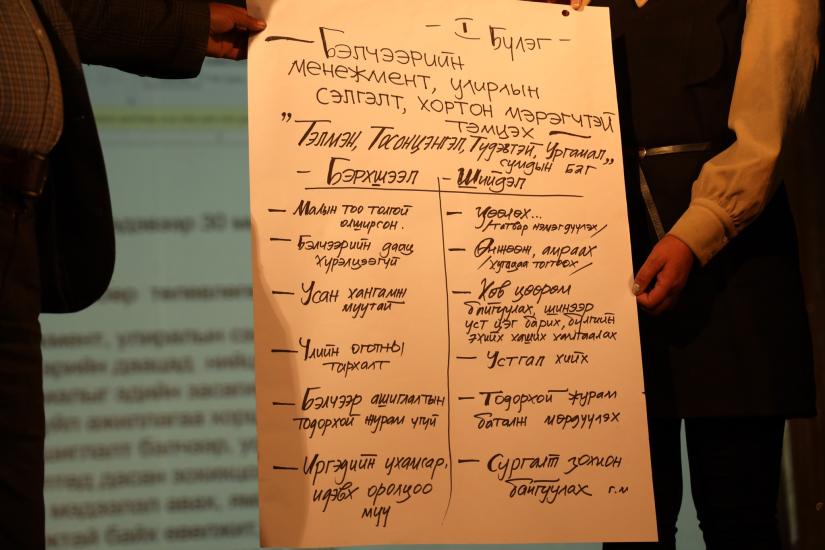 - I Бүлэг -
— Бэлчээрийн
менежмент, улирлын
сэлгэлт, хортон мэрэгчтэй
тэмцэх —
"Тэлмэн, Тосонцэнгэл, Түдэвтэй, Ургамал"
сумдын баг
- Бэрхшээл
- Шийдэл
- Малын тоо толгой
олширсон.
- Бэлчээрийн даац
хүрэлцээгүй
- Усан хангамж
муутай
- Үлийн оготны
тархалт
- Бэлчээр ашиглалтын
тодорхой журам үгүй
- Иргэдийн ухамсар,
идэвх оролцоо
муу
- Цөөлөх...
/татвар нэмэгдүүлэх/
- Өнжөөж, амраах
/хугацаа тогтоох/
- Хөв цөөрөм
байгуулах, шинээр
уст цэг барих, булгийн
эхийг хаших хамгаалах
- Устгал хийх
- Тодорхой журам
баталж мөрдүүлэх
- Сургалт зохион
байгуулах г.м